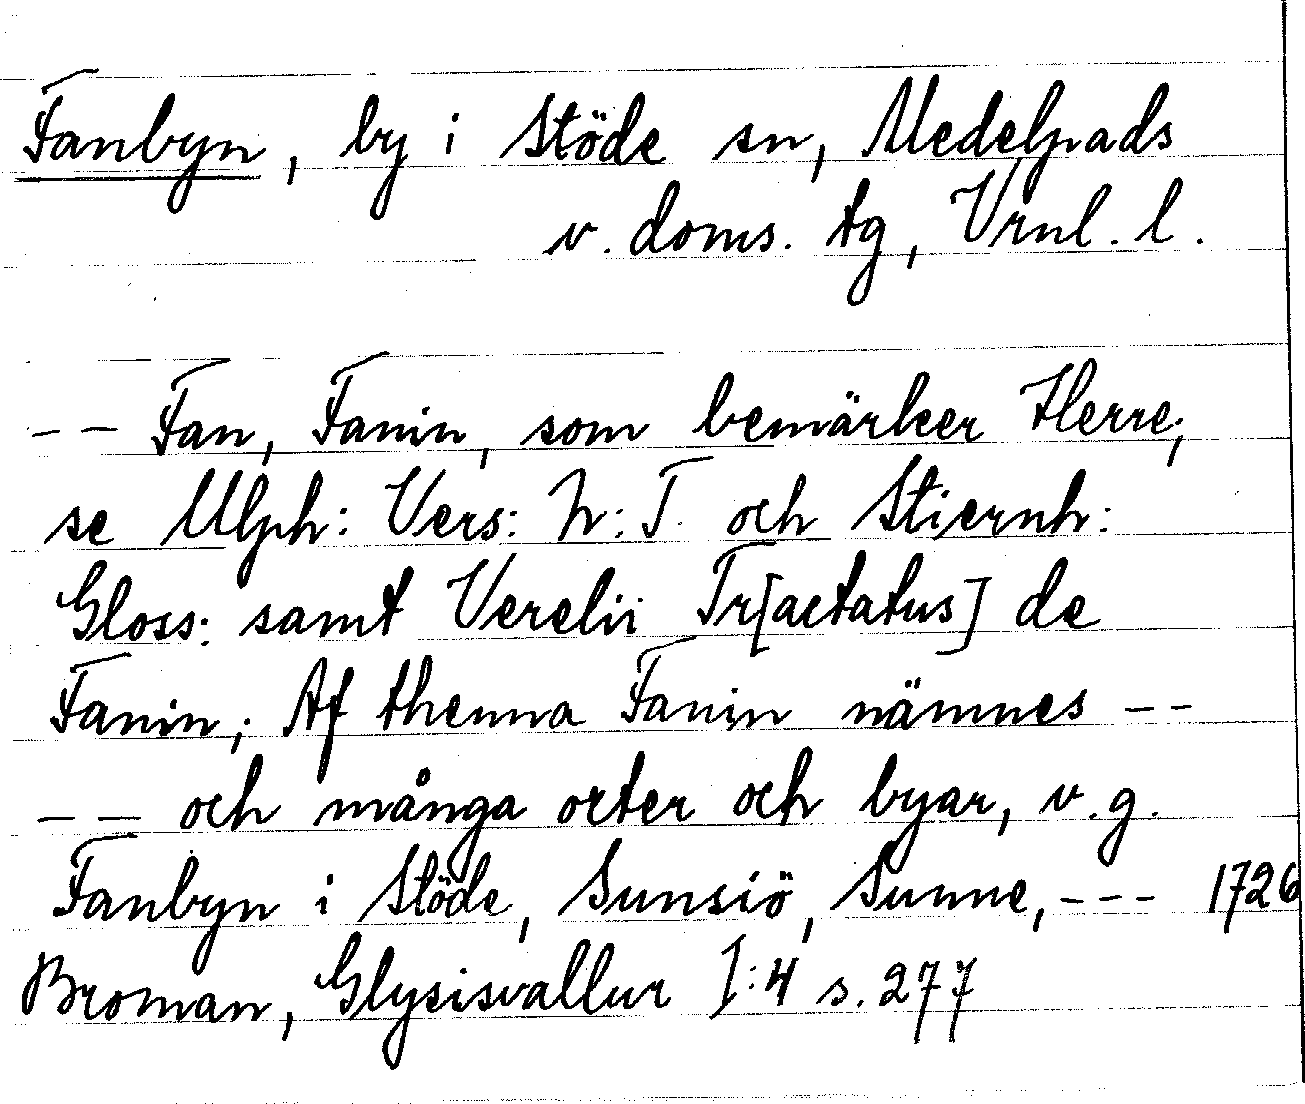 Fanbyn, by i Stöde sn, Medelpads
v. doms. tg, Vrnl. l.
-- Fan, Fanin, som bemärker Herre,
se Ulph: Vers: N: T. och Stiernh:
Gloss: samt Verelii Tr[actatus] de
Fanin; Af thenna Fanin nämnes --
-- och många orter och byar, v.g.
Fanbyn i Stöde, Sunsiö, Sunne, --- 1726
Broman, Glysisvallur I:4 s. 277